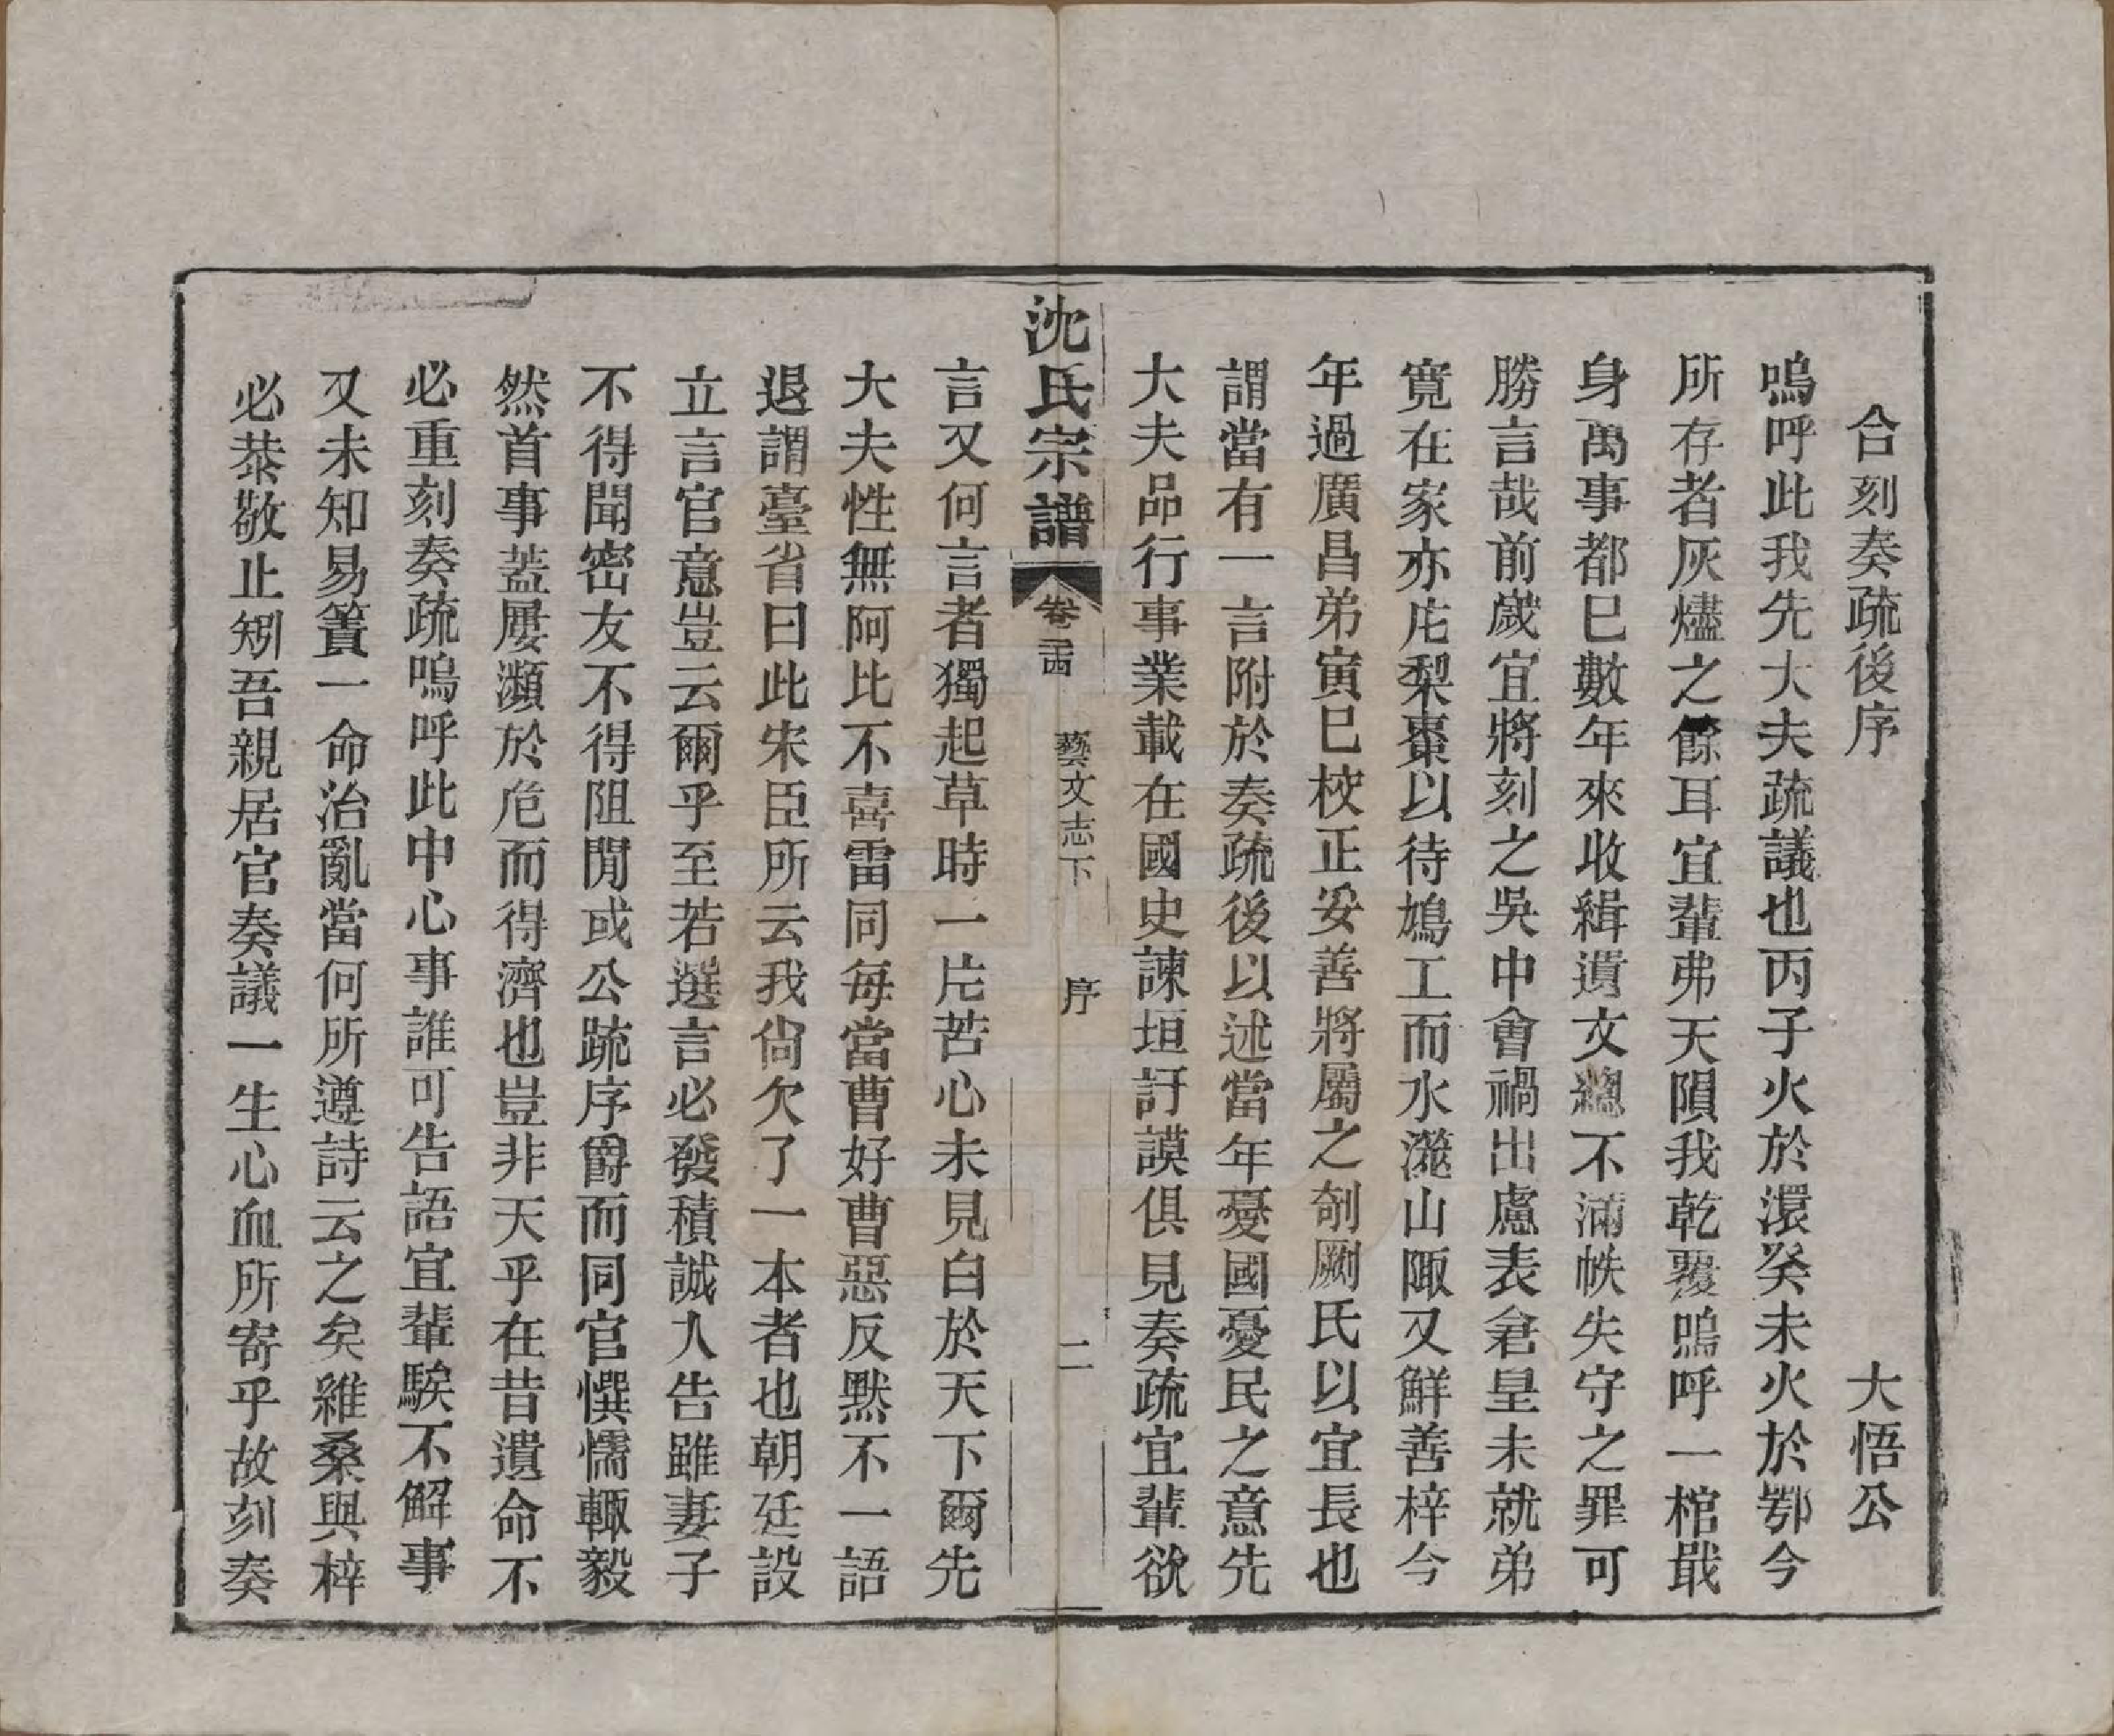 合刻奏疏後序　大悟公
嗚呼此我先大夫疏議也丙子火於澴癸未火於鄂今
所存者灰燼之餘耳宜輩弗天隕我乾覆嗚呼一棺戢
身萬事都已數年來收緝遺文總不滿帙失守之罪可
勝言哉前歲宜將刻之吳中會禍出慮表倉皇未就弟
寬在家亦庀梨棗以待鳩工而水瀧山陬又鮮善梓今
年過廣昌弟寅巳校正妥善將屬之剞劂氏以宜長也
謂當有一言附於奏疏後以述當年憂國憂民之意先
大夫品行事業載在國史諫垣訏謨俱見奏疏宜輩欲
沈氏宗譜
卷二十四
藝文志下
序
二
言又何言者獨起草時一片苦心未見白於天下爾先
大夫性無阿比不喜雷同每當曹好曹惡反默不一語
退謂臺省曰此宋臣所云我尙欠了一本者也朝廷設
立言官意豈云爾乎至若選言必發積誠人告雖妻子
不得聞密友不得阻閒或公疏序爵而同官懊懦輒毅
然首事蓋屢瀕於危而得濟也豈非天乎在昔遺命不
必重刻奏疏嗚呼此中心事誰可告語宜輩騃不解事
又未知易簀一命治亂當何所遵詩云之矣維桑與梓
必恭敬止矧吾親居官奏議一生心血所寄乎故刻奏